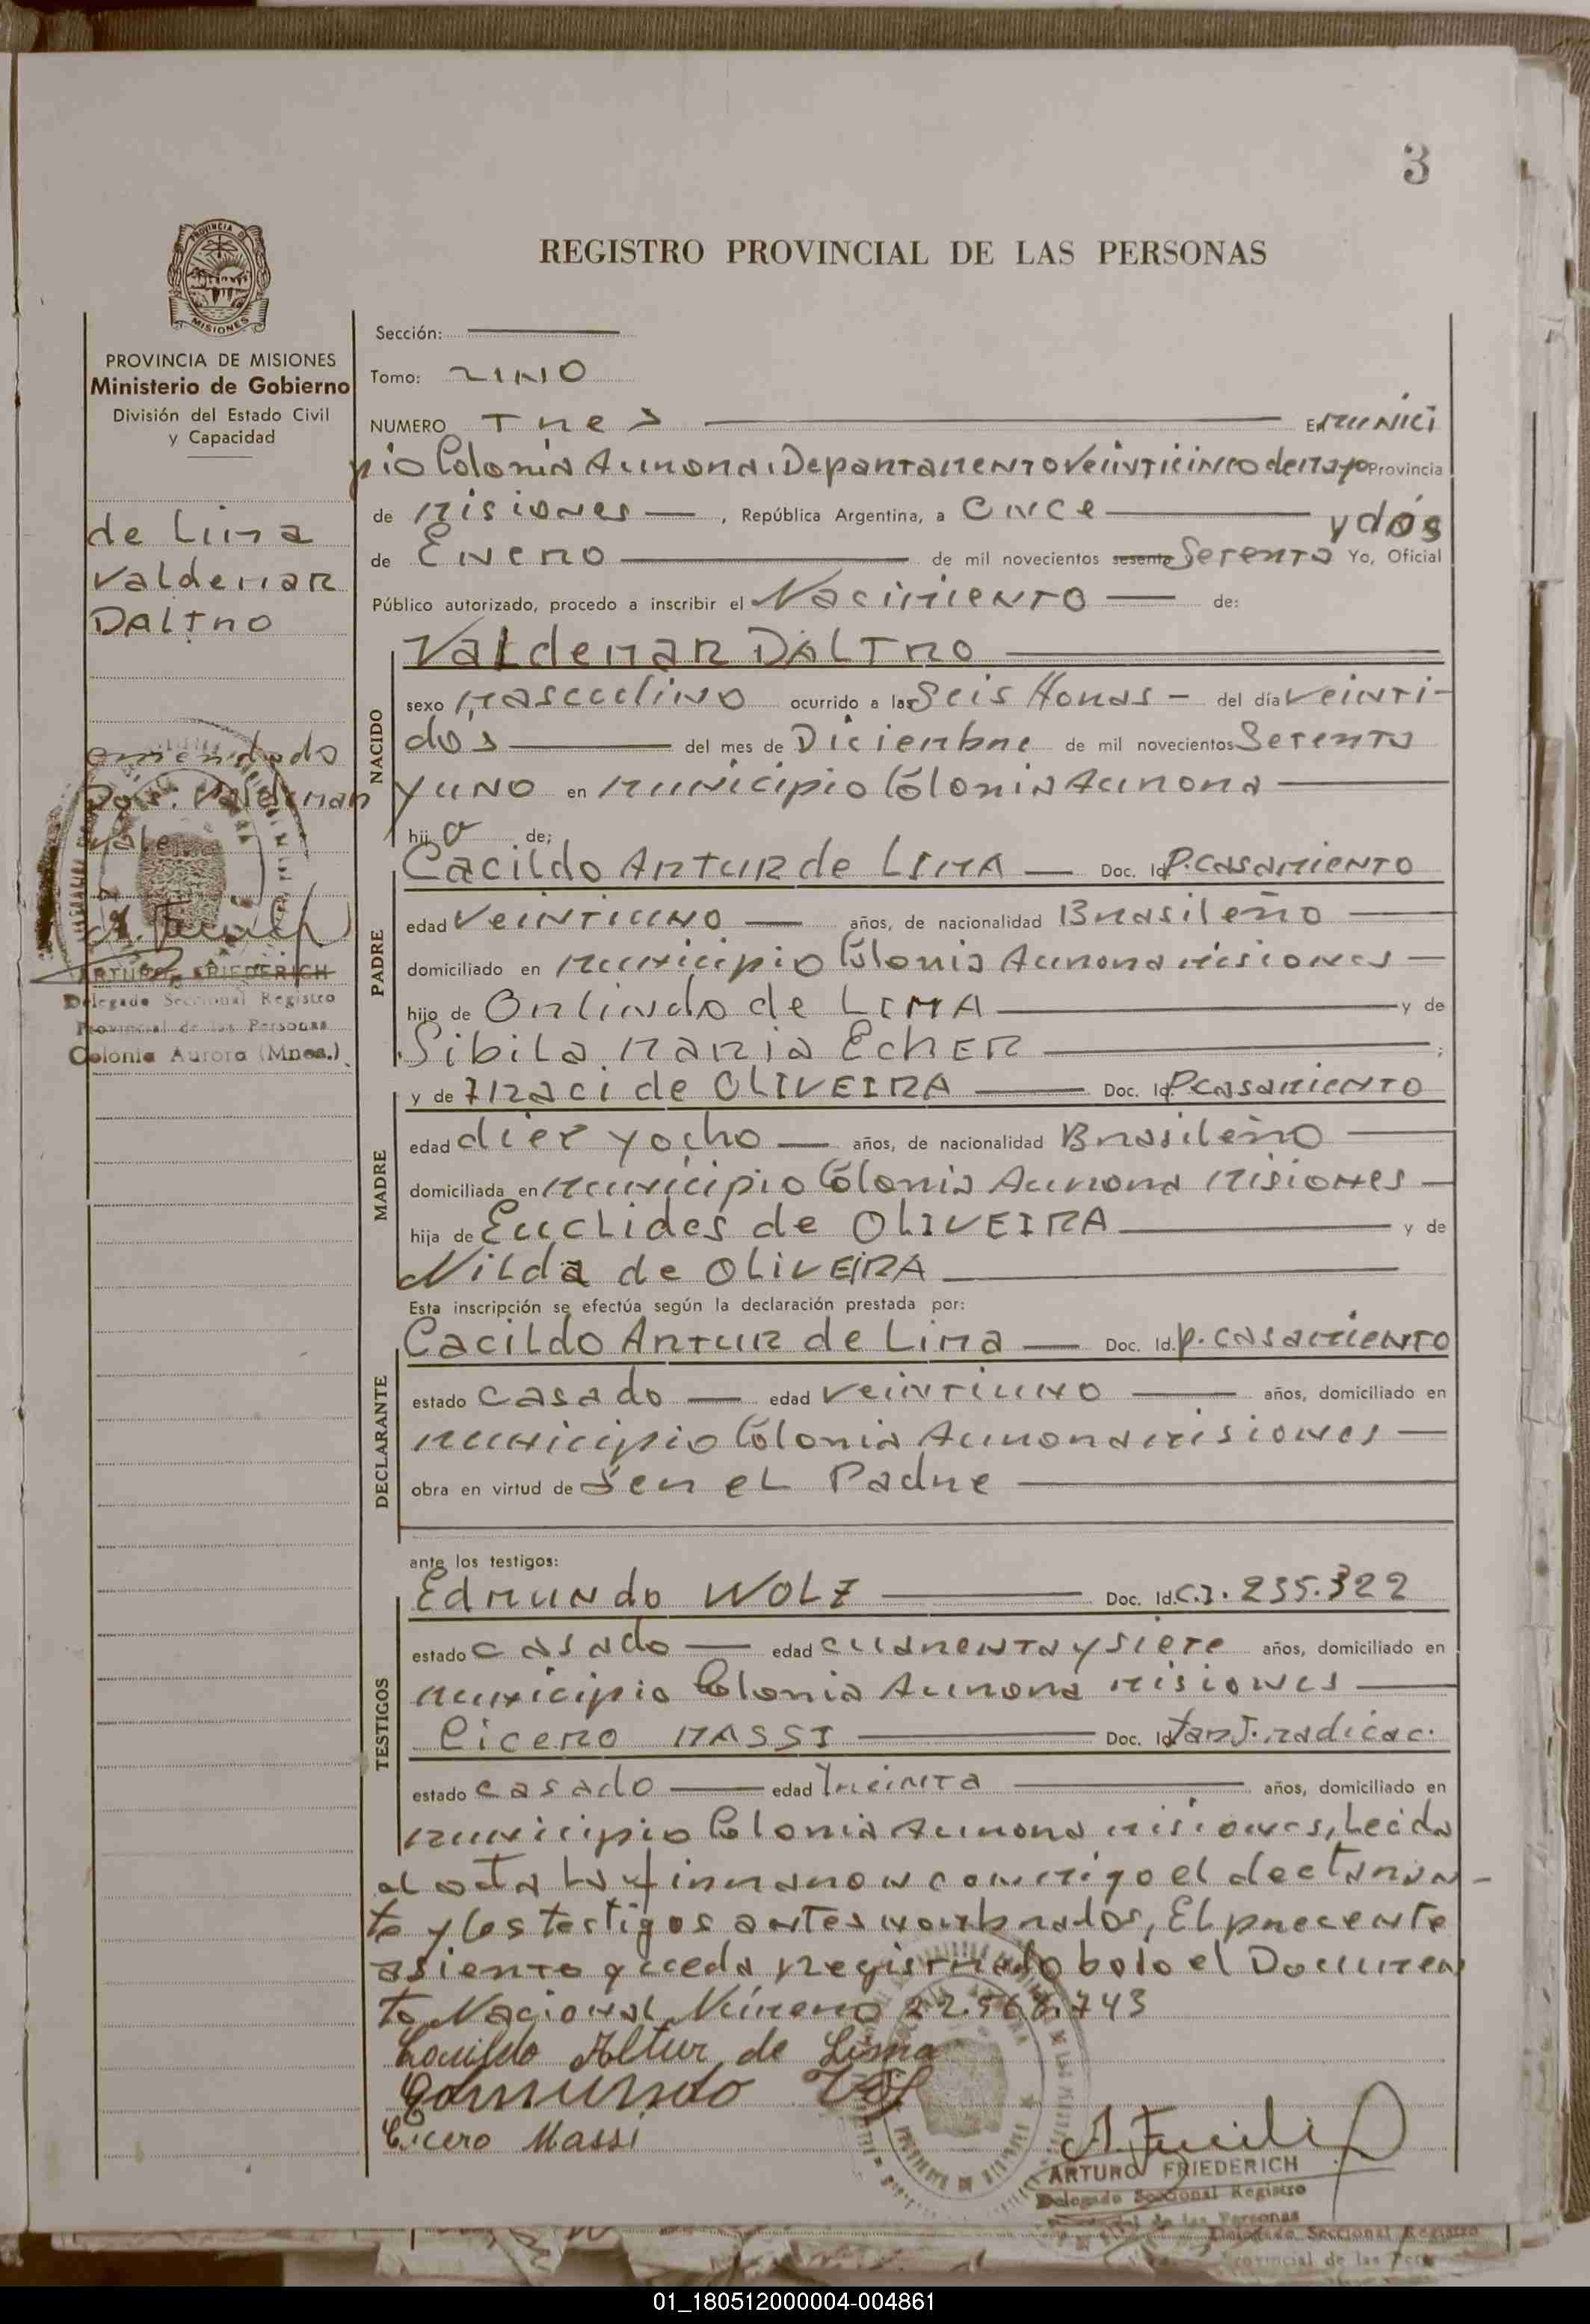 3
REGISTRO PROVINCIAL DE LAS PERSONAS
PROVINCIA DE
MISIONES
PROVINCIA DE MISIONES
Ministerio de Gobierno
División del Estado Civil
y Capacidad
de Lima
Valdemar
Daltro
enmendado
Dos. Valdemar
Vale
ARTURO FRIEDERICH
Delegado Seccional Registro
Provincial de las Personas
Colonia Aurora (Mnes.)
Sección:
Tomo: uno
NUMERO Tres En Munici
pio Colonia Aurora, Departamento Veinticinco de Mayo Provincia
de Misiones , República Argentina, a Once y dós
de Enero de mil novecientos sesenta Setenta Yo, Oficial
Público autorizado, procedo a inscribir el Nacimiento de:
Valdemar DALTRO
NACIDO
sexo Masculino ocurrido a las Seis Horas - del día Veinti-
dos del mes de Diciembre de mil novecientos Setenta
y uno en Municipio Colonia Aurora
hijo de;
PADRE
Cacildo Artur de LIMA Doc. Id. P. casamiento
edad Veintiuno años, de nacionalidad Brasileño
domiciliado en Municipio Colonia Aurora Misiones
hijo de Orlindo de LIMA y de
Sibila Maria EcHER ;
MADRE
y de Iraci de OLIVEIRA Doc. Id. P. casamiento
edad diez y ocho años, de nacionalidad Brasileño
domiciliada en Municipio Colonia Aurora Misiones
hija de Euclides de OLIVEIRA y de
Nilda de OLIVEIRA
Esta inscripción se efectúa según la declaración prestada por:
DECLARANTE
Cacildo Artur de Lima Doc. Id. P. casamiento
estado casado edad veintiuno años, domiciliado en
Municipio Colonia Aurora Misiones
obra en virtud de Ser el Padre
ante los testigos:
TESTIGOS
Edmundo WOLZ Doc. Id. C.I. 235.322
estado casado edad cuarenta y siete años, domiciliado en
Municipio Colonia Aurora Misiones
Cicero MASSI Doc. Id. Tarj. radicac.
estado casado edad Treinta años, domiciliado en
Municipio Colonia Aurora Misiones, Leida
el acta la firmaron conmigo el declaran-
te y los testigos antes nombrados, El precente
asiento queda registrado bajo el Documen
to Nacional Número 22.568.743
Cacildo Altur de Lima
Edmundo
Cicero Massi
ARTURO FRIEDERICH
Delegado Seccional Registro
de las Personas
Delegado Seccional Registro
Provincial de las Pers
01_180512000004-004861